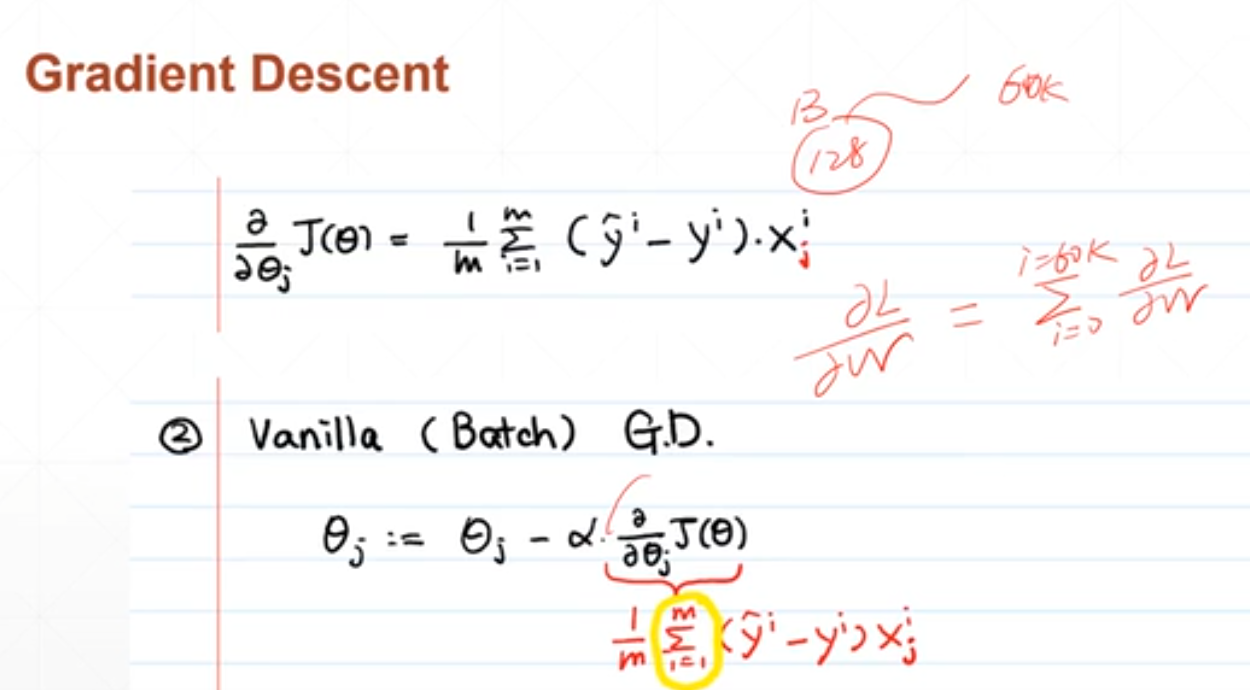 Gradient Descent
B 60K
128
∂/∂θj J(θ) = 1/m Σ_{i=1}^{m} (ŷ^i - y^i)·x_j^i
∂L/∂W = Σ_{i=0}^{i=60K} ∂L/∂W
② Vanilla (Batch) G.D.
θj := θj - α· ∂/∂θj J(θ)
1/m Σ_{i=1}^{m} (ŷ^i - y^i) x_j^i